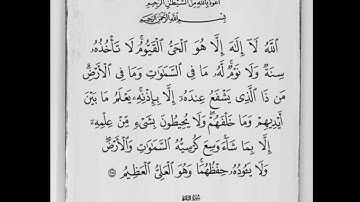 أعوذ بالله من الشيطن الرجيم
بسم الله الرحمن الرحيم
ٱللَّهُ لَآ إِلَٰهَ إِلَّا هُوَ ٱلْحَىُّ ٱلْقَيُّومُ ۚ لَا تَأْخُذُهُۥ
سِنَةٌ وَلَا نَوْمٌ ۚ لَّهُۥ مَا فِى ٱلسَّمَٰوَٰتِ وَمَا فِى ٱلْأَرْضِ ۗ
مَن ذَا ٱلَّذِى يَشْفَعُ عِندَهُۥٓ إِلَّا بِإِذْنِهِۦ ۚ يَعْلَمُ مَا بَيْنَ
أَيْدِيهِمْ وَمَا خَلْفَهُمْ ۖ وَلَا يُحِيطُونَ بِشَىْءٍ مِّنْ عِلْمِهِۦٓ
إِلَّا بِمَا شَآءَ ۚ وَسِعَ كُرْسِيُّهُ ٱلسَّمَٰوَٰتِ وَٱلْأَرْضَ ۖ
وَلَا يَـُٔودُهُۥ حِفْظُهُمَا ۚ وَهُوَ ٱلْعَلِىُّ ٱلْعَظِيمُ